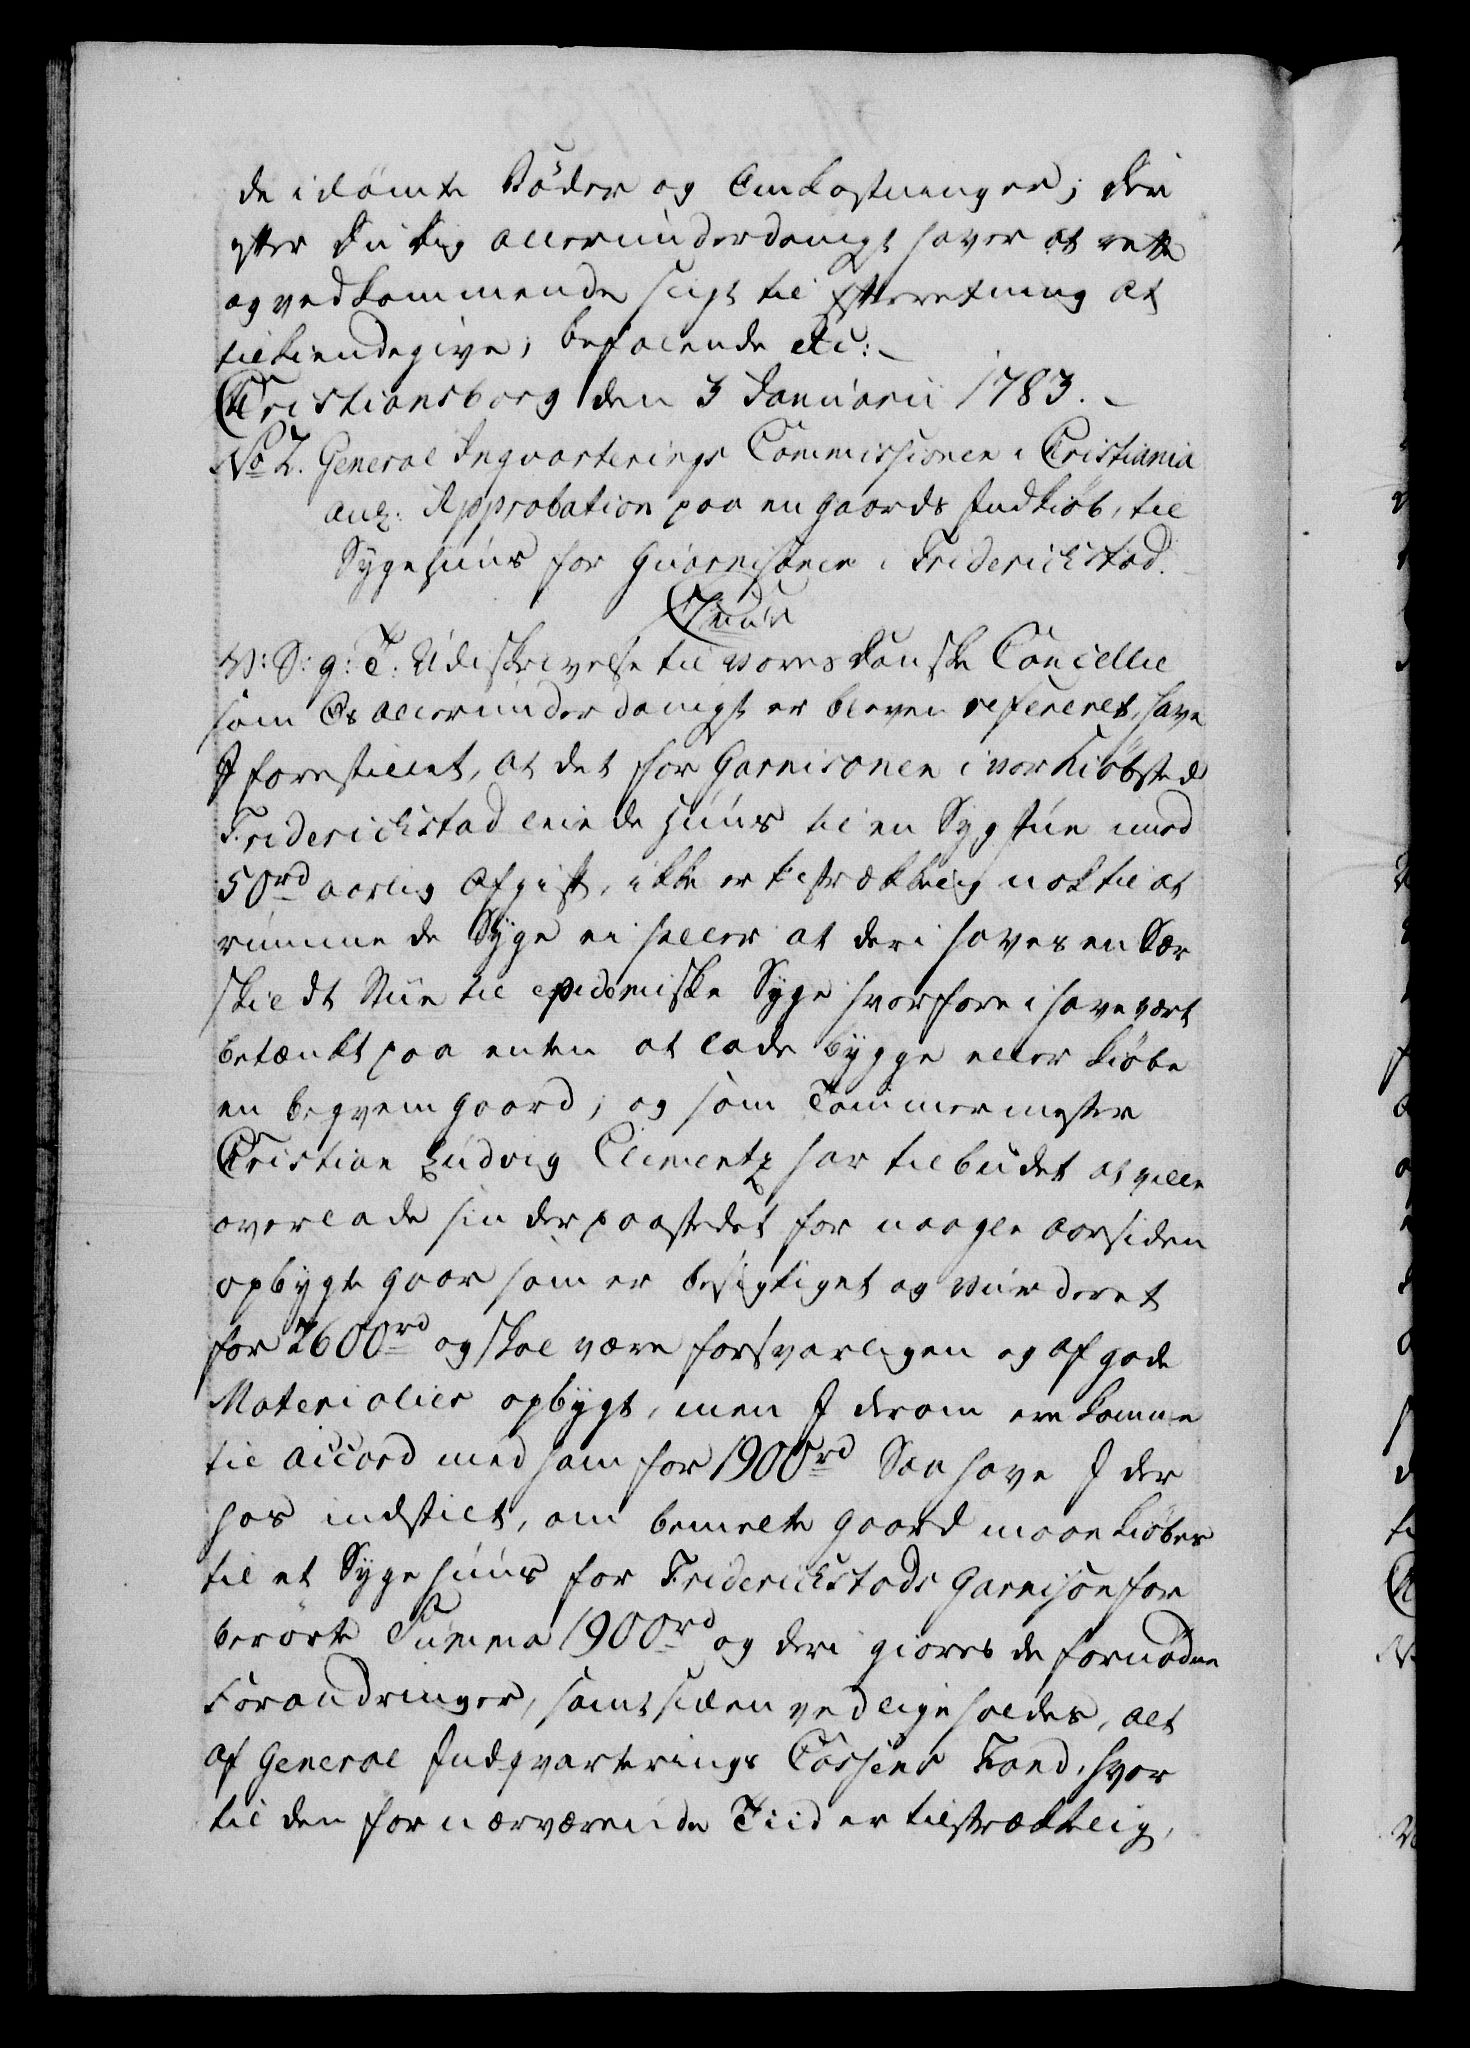 de idömte Böder og Omkostninger; der
efter Du Dig allerunderdanigst haver at rette
og vedkommende sligt til Efterretning at
tilkiendegive; befalende etc:
Christiansborg den 3 Januarii 1783.
No 2. General Inqvarterings Commissionen i Christiania
ang: Approbation paa en Gaards Indkiöb, til
Sygehuus for Guarnisonen i Friderichstad.
V: S: g: T. Udi Skrivelse til vores danske Cancellie
som Os allerunderdanigst er bleven refereret, have
I forestillet, at det for Garnisonen i vor Kiöbsted
Friderichstad leiede Huus til en Sygstue imod
50rd aarlig Afgift, ikke er tilstrækkelig nok til at
rumme de Syge ei heller at deri haves en Sær
skildt Stue til epidemiske Syge hvorfore i have vært
betænkt paa enten at lade bygge eller kiöbe
en beqvem Gaard; og som Tömmermester
Christian Ludvig Clementz har tilbudet at ville
overlade sin der paa stedet for nogle aar siden
opbygte Gaar som er besigtiget og vurderet
for 2600rd og skal være forsvarligen og af gode
Materialier opbygt, men I derom ere komne
til accord med ham for 1900rd Saa have I der
hos indstilt, om bemelte Gaard maae kiöbes
til et Sygehuus for Friderichstads Garnison for
berörte Summa 1900rd og deri giöres de fornödne
Forandringer, samt siden vedligeholdes, alt
af General Indqvarterings Cassens Fond, hvor
til den for nærværende Tiid er tilstrækkelig,